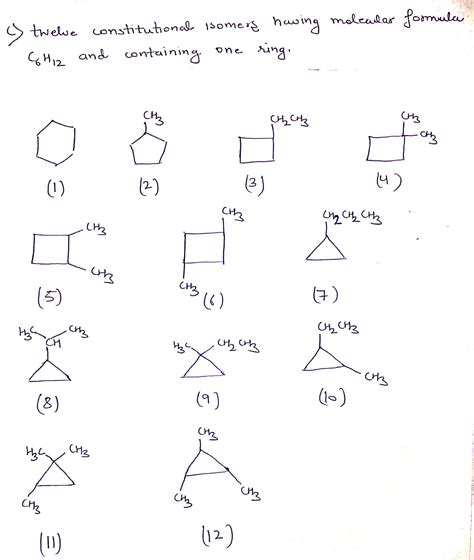 c) twelve constitutional isomers having molecular formula
C6H12 and containing one ring.
CH3
CH2CH3
CH3
CH3
(1)
(2)
(3)
(4)
CH3
CH3
CH3
CH3
CH2CH2CH3
(5)
(6)
(7)
H3C
CH3
CH
H3C
CH2CH3
CH2CH3
CH3
(8)
(9)
(10)
H3C
CH3
CH3
CH3
CH3
CH3
(11)
(12)